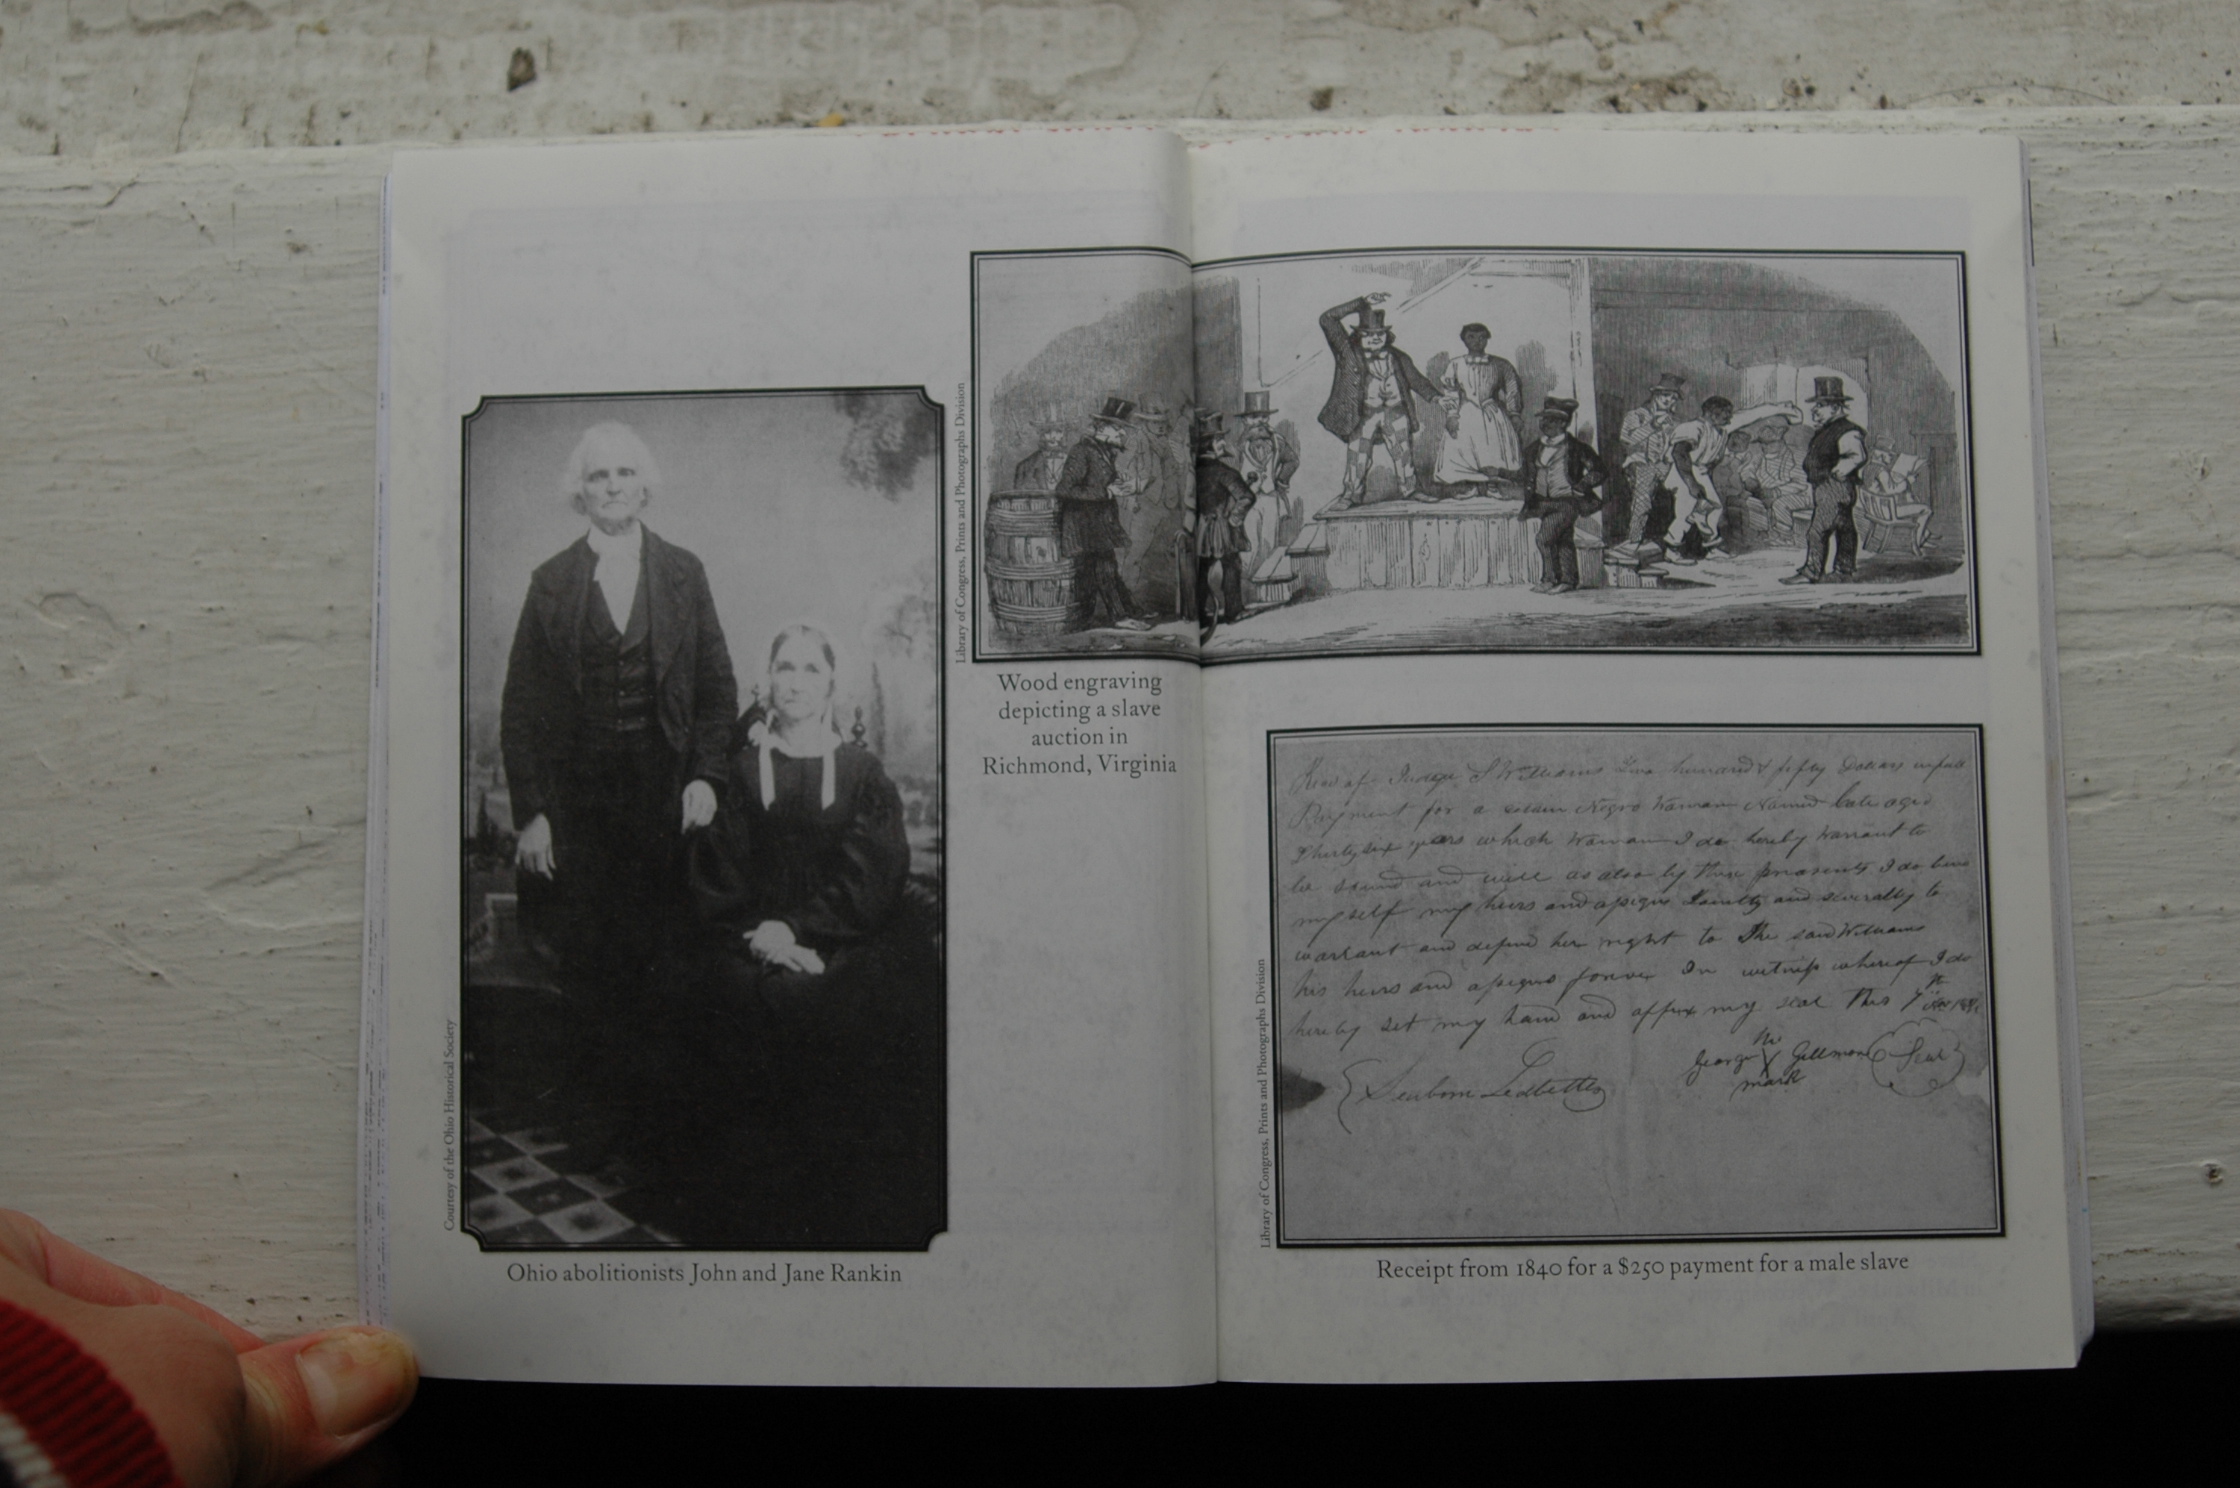 Courtesy of the Ohio Historical Society
Ohio abolitionists John and Jane Rankin
Library of Congress, Prints and Photographs Division
Wood engraving
depicting a slave
auction in
Richmond, Virginia
Library of Congress, Prints and Photographs Division
Judge S Williams Two hundred & fifty Dollars in full
Payment for a certain Negro Woman Named aged
Thirty six years which Woman I do hereby Warrant to
be sound and well as also by these presents I do bind
myself my heirs and assigns Jointly and severally to
warrant and defend her right to the said Williams
his heirs and assigns forever In witness whereof I do
hereby set my hand and affix my seal This 7th
George his X mark Gillmore (Seal)
Seaborn Ledbetter
Receipt from 1840 for a $250 payment for a male slave